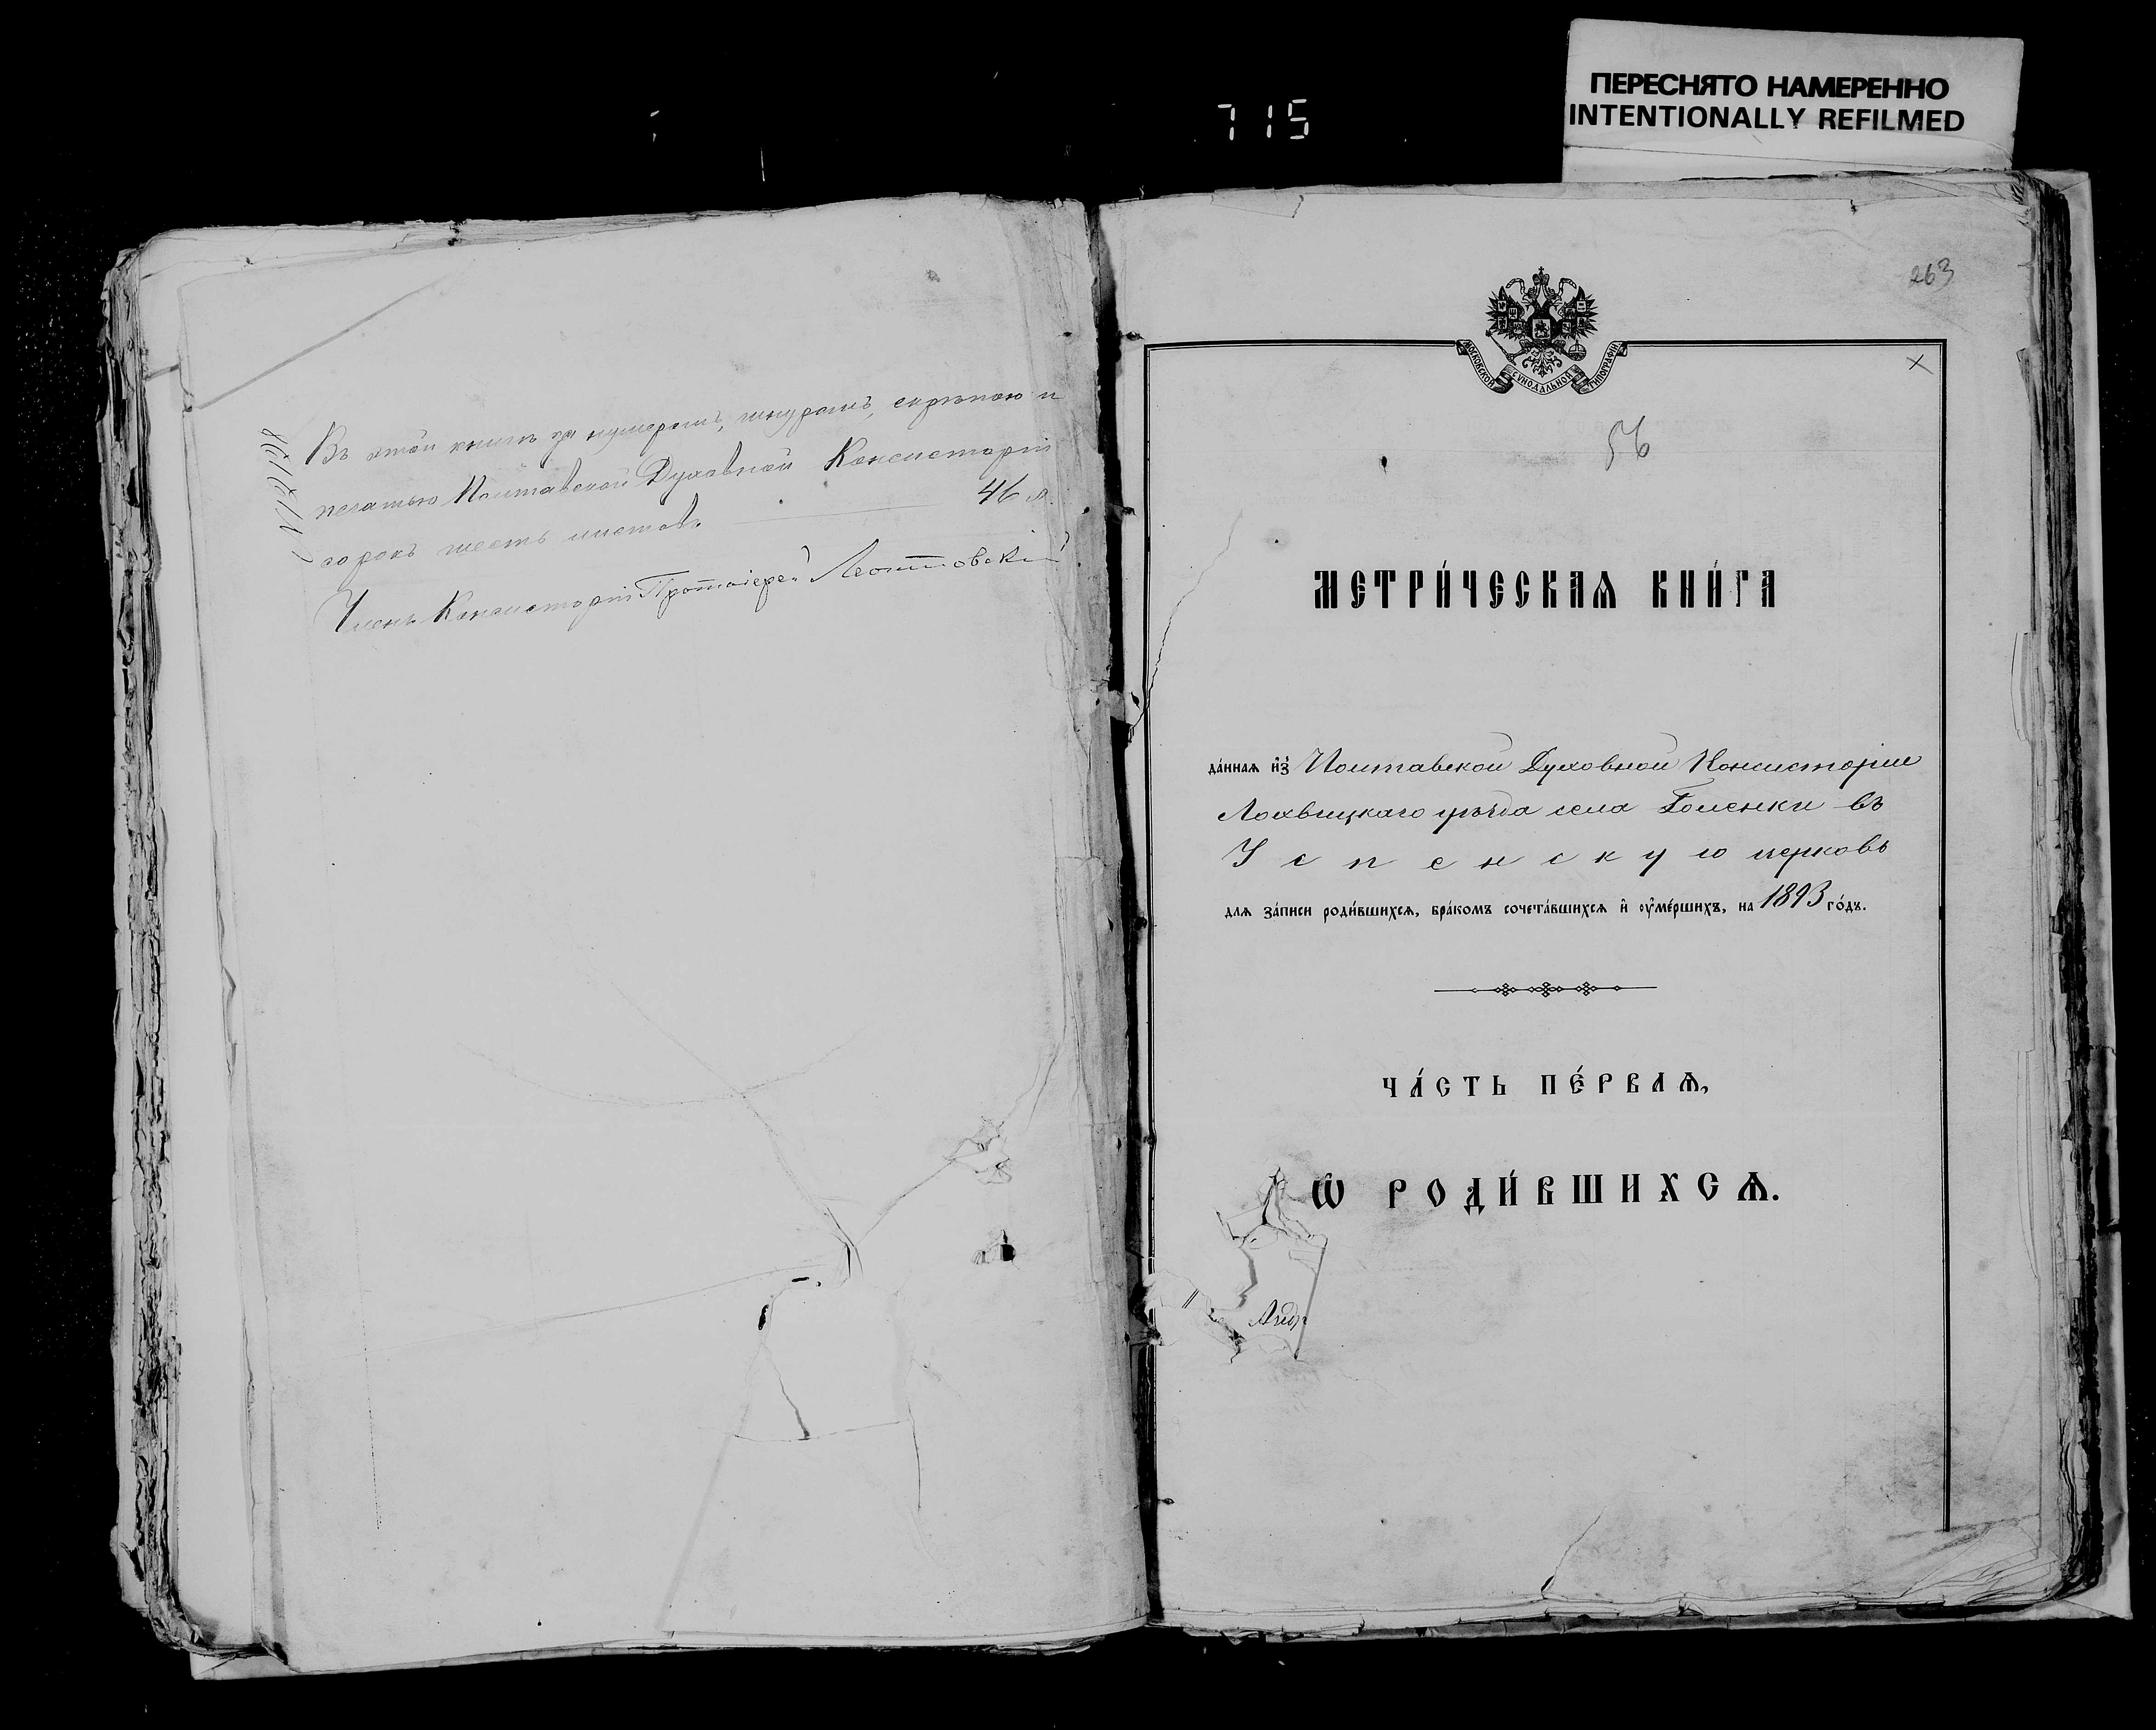 ПЕРЕСНЯТО НАМЕРЕННО
INTENTIONALLY REFILMED
715
Въ этой книгѣ за нумеромъ, шнуромъ, скрѣпою и
печатью Полтавской Духовной Консисторіи
сорокъ шесть листовъ 46 л.
Членъ Консисторіи Протоіерей Леонтовскій
263
МОСКОВСКОЙ СѴНОДАЛЬНОЙ ТИПОГРАФІИ
56
МЕТРИ́ЧЕСКАѦ КНИ́ГА
да́ннаѧ и҆з̾ Полтавской Духовной Консисторіи
Лохвицкаго уѣзда села Голенки въ
Успенскую церковь
длѧ за́писи роди́вшихсѧ, бра́комъ сочета́вшихсѧ и҆ ᲂу҆ме́ршихъ, на 1893 го́дъ.
ЧА́СТЬ ПЕ́РВАѦ,
Ѡ҆ РОДИ́ВШИХСѦ.